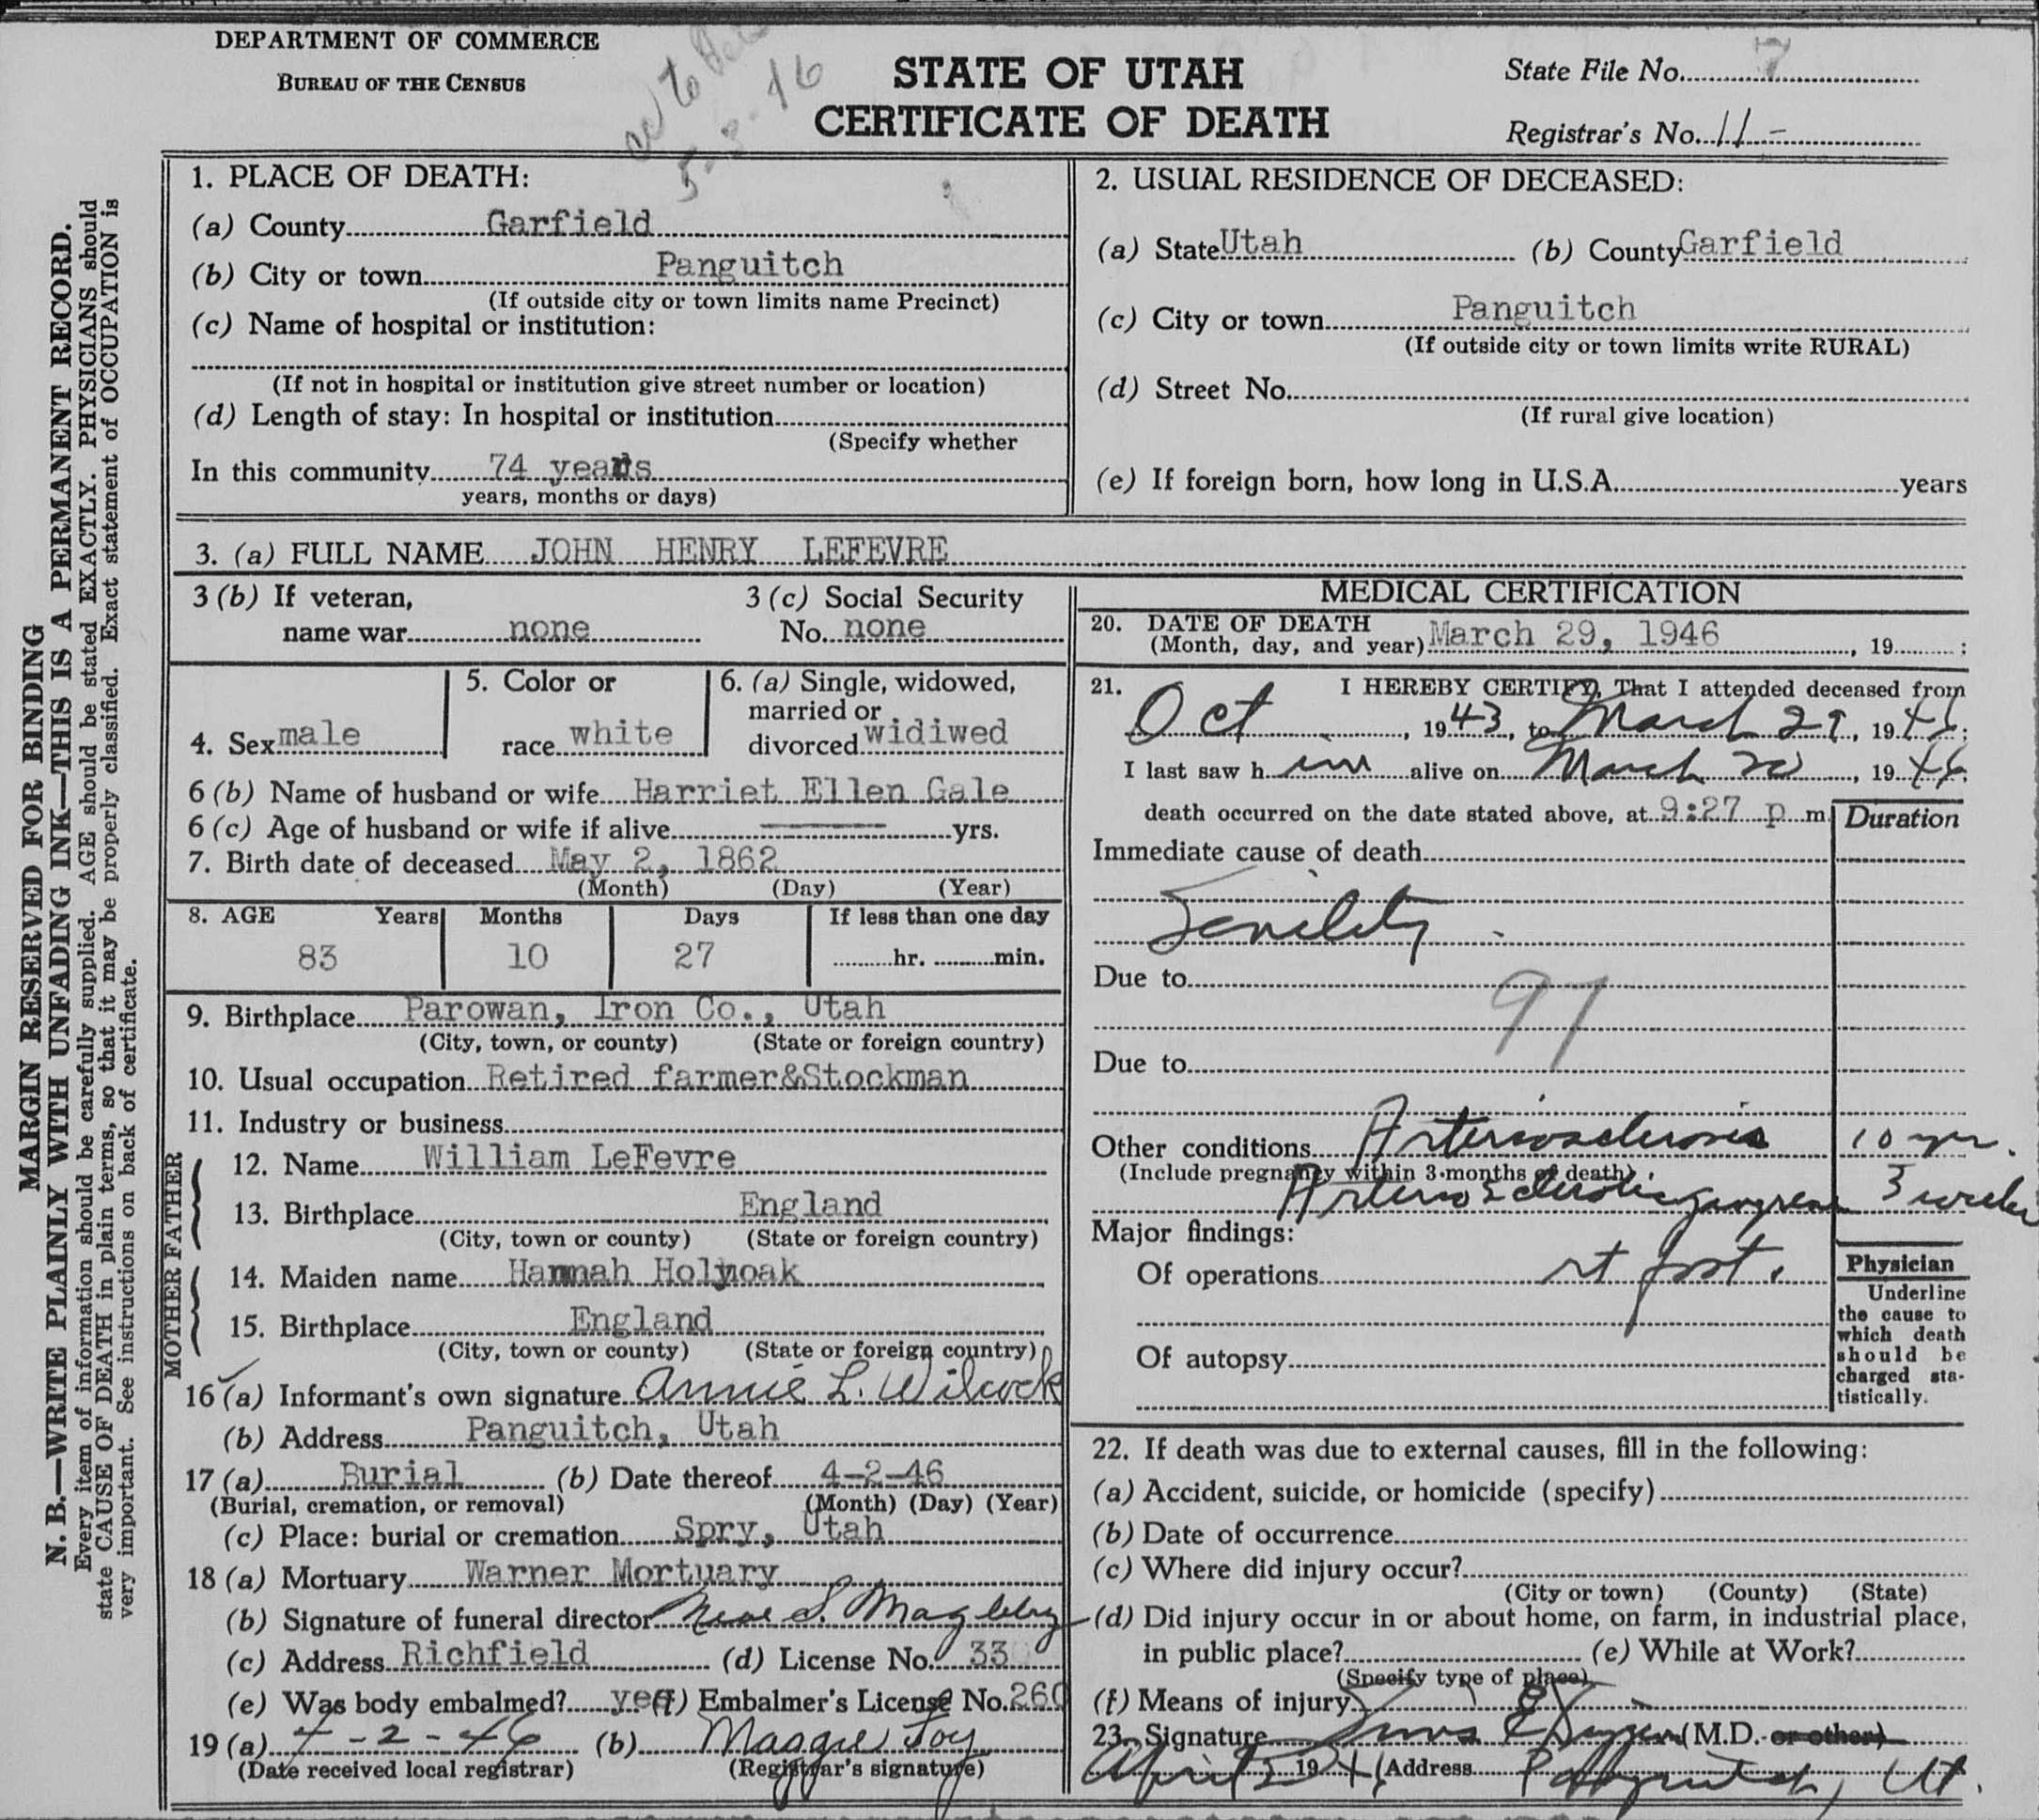 DEPARTMENT OF COMMERCE
BUREAU OF THE CENSUS
to
5-3-46
STATE OF UTAH
CERTIFICATE OF DEATH
State File No. 7
Registrar's No. 11-
MARGIN RESERVED FOR BINDING
N. B.—WRITE PLAINLY WITH UNFADING INK—THIS IS A PERMANENT RECORD.
Every item of information should be carefully supplied. AGE should be stated EXACTLY. PHYSICIANS should
state CAUSE OF DEATH in plain terms, so that it may be properly classified. Exact statement of OCCUPATION is
very important. See instructions on back of certificate.
1. PLACE OF DEATH:
(a) County Garfield
(b) City or town Panguitch
(If outside city or town limits name Precinct)
(c) Name of hospital or institution:
(If not in hospital or institution give street number or location)
(d) Length of stay: In hospital or institution
(Specify whether
In this community 74 years
years, months or days)
2. USUAL RESIDENCE OF DECEASED:
(a) State Utah (b) County Garfield
(c) City or town Panguitch
(If outside city or town limits write RURAL)
(d) Street No.
(If rural give location)
(e) If foreign born, how long in U.S.A. years
3. (a) FULL NAME JOHN HENRY LEFEVRE
3 (b) If veteran, 3 (c) Social Security
name war none No. none
4. Sex male
5. Color or
race white
6. (a) Single, widowed,
married or
divorced widiwed
6 (b) Name of husband or wife Harriet Ellen Gale
6 (c) Age of husband or wife if alive yrs.
7. Birth date of deceased May 2, 1862
(Month) (Day) (Year)
8. AGE Years Months Days If less than one day
83 10 27 hr. min.
9. Birthplace Parowan, Iron Co., Utah
(City, town, or county) (State or foreign country)
10. Usual occupation Retired farmer&Stockman
11. Industry or business
FATHER
12. Name William LeFevre
13. Birthplace England
(City, town or county) (State or foreign country)
MOTHER
14. Maiden name Hannah Holyoak
15. Birthplace England
(City, town or county) (State or foreign country)
16 (a) Informant's own signature Annie L. Wilcock
(b) Address Panguitch, Utah
17 (a) Burial (b) Date thereof 4-2-46
(Burial, cremation, or removal) (Month) (Day) (Year)
(c) Place: burial or cremation Spry, Utah
18 (a) Mortuary Warner Mortuary
(b) Signature of funeral director Neal S. Magleby
(c) Address Richfield (d) License No. 33
(e) Was body embalmed? yes (f) Embalmer's License No. 260
19 (a) 4-2-46 (b) Maggie Foy
(Date received local registrar) (Registrar's signature)
MEDICAL CERTIFICATION
20. DATE OF DEATH
(Month, day, and year) March 29, 1946, 19 ;
21. I HEREBY CERTIFY, That I attended deceased from
Oct, 1943, to March 29, 1946;
I last saw h im alive on March 20, 1946
death occurred on the date stated above, at 9:27 p m. Duration
Immediate cause of death
Senility
Due to
97
Due to
Other conditions Arteriosclerosis 10 yr.
(Include pregnancy within 3 months of death)
Arteriosclerotic gangrene 3 weeks
Major findings:
Of operations rt foot.
Of autopsy
Physician
Underline
the cause to
which death
should be
charged sta-
tistically.
22. If death was due to external causes, fill in the following:
(a) Accident, suicide, or homicide (specify)
(b) Date of occurrence
(c) Where did injury occur?
(City or town) (County) (State)
(d) Did injury occur in or about home, on farm, in industrial place,
in public place? (e) While at Work?
(Specify type of place)
(f) Means of injury
23. Signature (M.D. or other)
April 2 194 Address Panguitch, Ut.